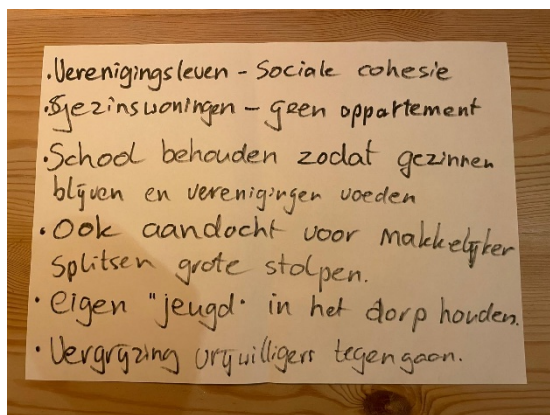 • Verenigingsleven - Sociale cohesie
• gezinswoningen - geen appartement
• School behouden zodat gezinnen
blijven en verenigingen voeden
• Ook aandacht voor makkelijker
splitsen grote stolpen.
• eigen "jeugd" in het dorp houden.
• Vergrijzing vrijwilligers tegengaan.